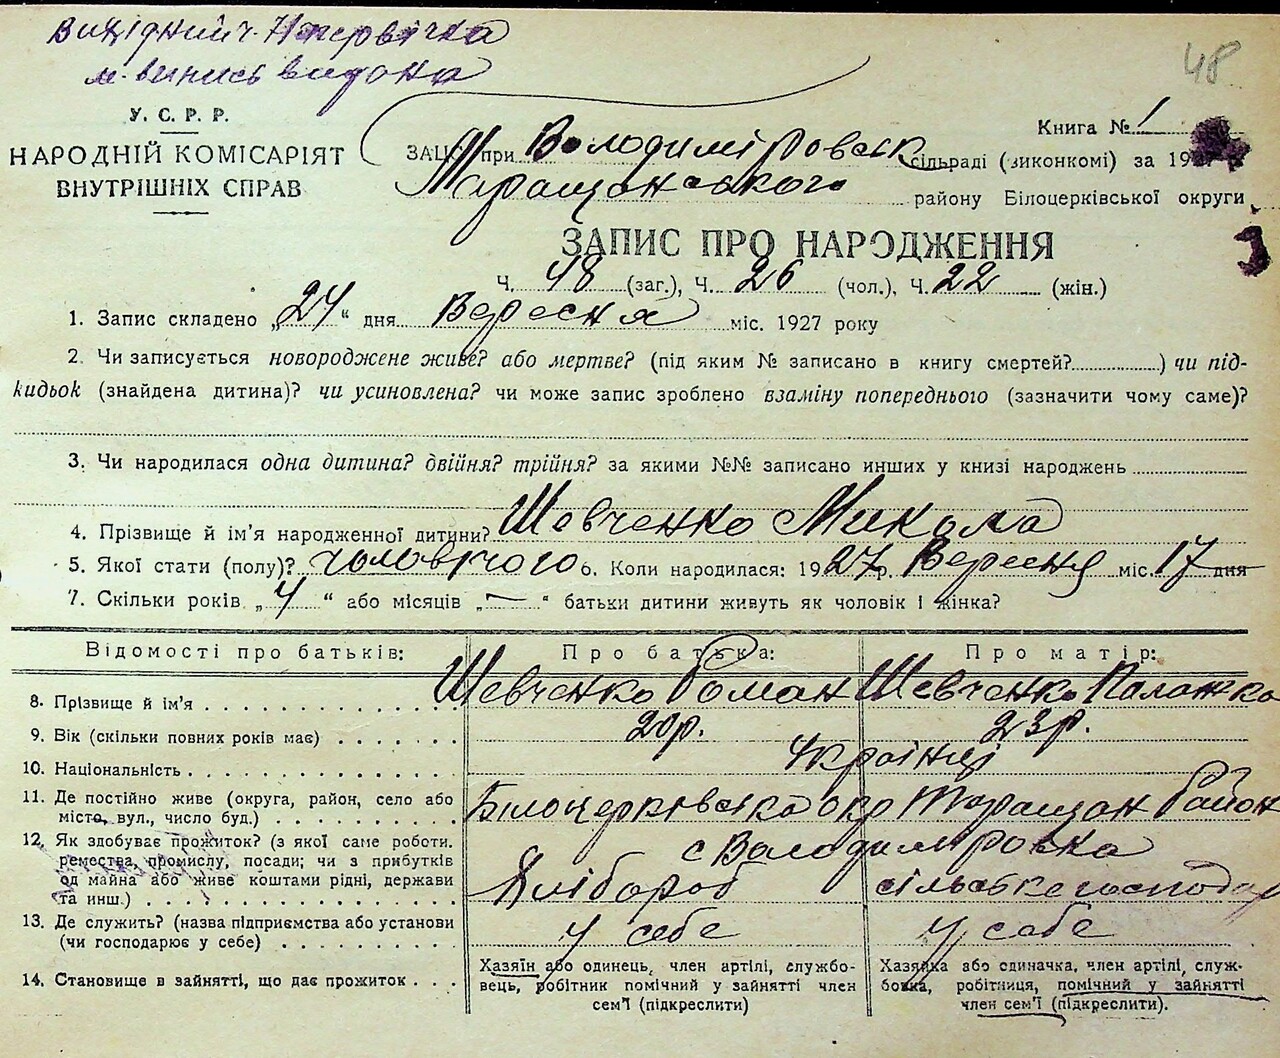 48
У. С. Р. Р.
НАРОДНІЙ КОМІСАРІЯТ
ВНУТРІШНІХ СПРАВ
Книга № 1
ЗАЦС при Володиміровськ сільраді (виконкомі) за 1927 р.
Таращанського району Білоцерківської округи
ЗАПИС ПРО НАРОДЖЕННЯ
Ч. 48 (заг.), Ч. 26 (чол.), Ч. 22 (жін.)
1. Запис складено „24“ дня Вересня міс. 1927 року
2. Чи записується новороджене живе? або мертве? (під яким № записано в книгу смертей?) чи під-
кидьок (знайдена дитина)? чи усиновлена? чи може запис зроблено взаміну попереднього (зазначити чому саме)?
3. Чи народилася одна дитина? двійня? трійня? за якими №№ записано инших у книзі народжень
4. Прізвище й ім'я народженної дитини? Шевченко Микола
5. Якої стати (полу)? чоловічого 6. Коли народилася: 1927 р. Вересня міс. 17 дня
7. Скільки років „4“ або місяців „—“ батьки дитини живуть як чоловік і жінка?
Відомості про батьків: Про батька: Про матір:
8. Прізвище й ім'я Шевченко Роман Шевченко Палажка
9. Вік (скільки повних років має) 20р. 23р.
10. Національність Українці
11. Де постійно живе (округа, район, село або Білоцерківська окр Таращан Район
місто, вул., число буд.) с Володиміровка
12. Як здобуває прожиток? (з якої саме роботи.
ремества, промислу, посади; чи з прибутків
од майна або живе коштами рідні, держави Хлібороб сільське господар
та инш.)
13. Де служить? (назва підприємства або установи у себе у себе
(чи господарює у себе)
14. Становище в зайнятті, що дає прожиток
Хазяїн або одинець, член артілі, службо-
вець, робітник помічний у зайнятті член
сем'ї (підкреслити)
Хазяйка або одиначка, член артілі, служ-
бовка, робітниця, помічний у зайнятті
член сем'ї (підкреслити).